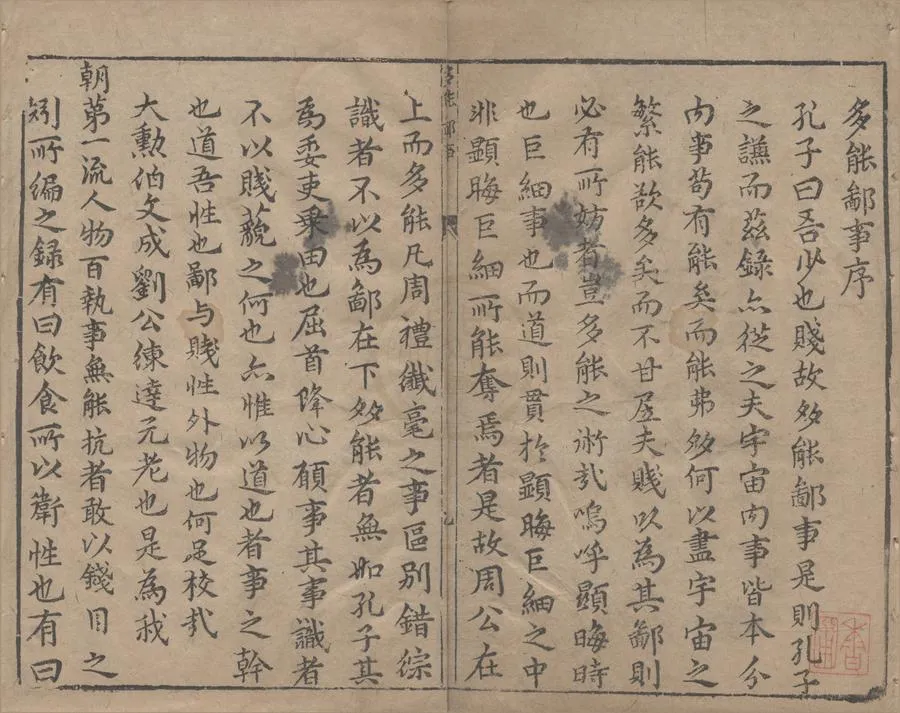 多能鄙事序
孔子曰吾少也賤故多能鄙事是則孔子
之謙而茲錄亦從之夫宇宙内事皆本分
内事茍有能矣而能弗多何以盡宇宙之
繁能欲多矣而不甘居夫賤以為其鄙則
必有所妨者豈多能之術哉嗚呼顯晦時
也巨細事也而道則貫於顯晦巨細之中
非顯晦巨細所能奪焉者是故周公在
上而多能凡周禮纖毫之事區別錯綜
識者不以為鄙在下多能者無如孔子其
為委吏乗田也屈首降心願事其事識者
不以賤藐之何也亦惟以道也者事之幹
也道吾性也鄙与賤性外物也何足校哉
大勲伯文成劉公練達元老也是為我
朝第一流人物百執事無能抗者敢以錢目之
矧所編之録有曰飲食所以衛性也有曰
多能鄙事